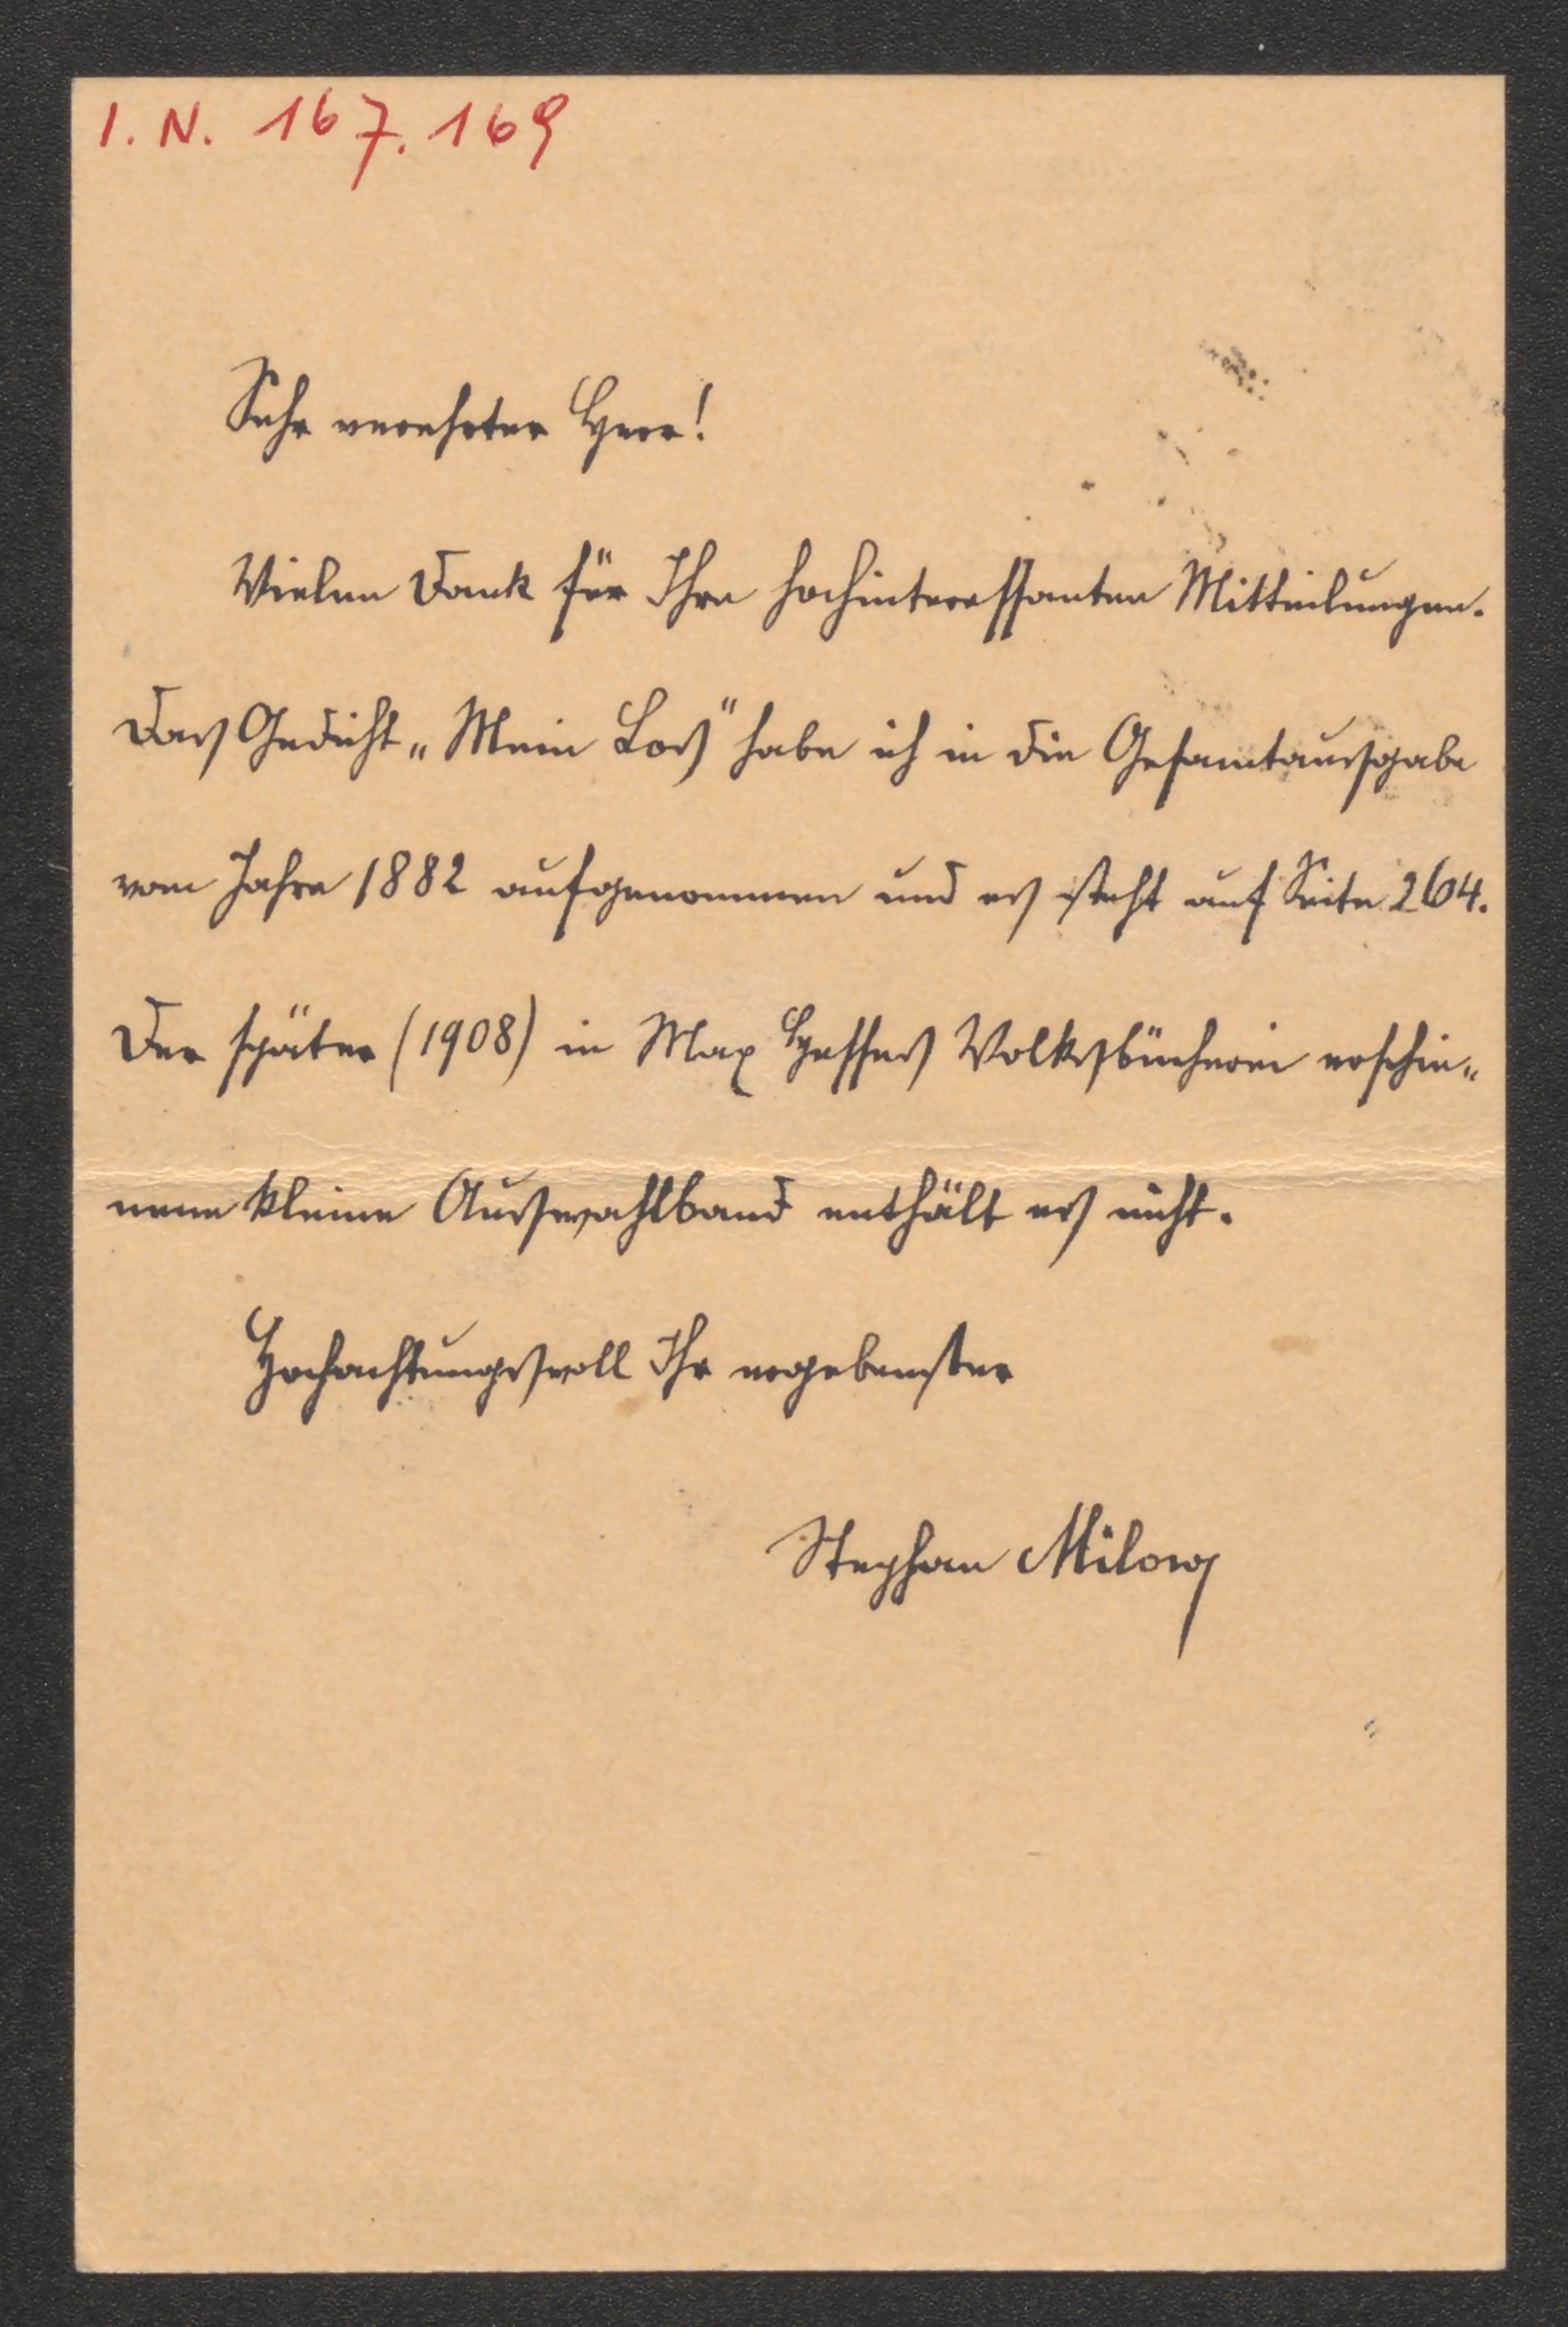 I. N. 167.169
Sehr verehrter Herr!
Vielen Dank für Ihre hochinteressanten Mitteilungen.
Das Gedicht „Mein Los" habe ich in die Gesamtausgabe
vom Jahre 1882 aufgenommen und es steht auf Seite 264.
Der später (1908) in Max Hesses Volksbücherei erschie„
nene kleine Auswahlband enthält es nicht.
Hochachtungsvoll Ihr ergebenster
Stephan Milow